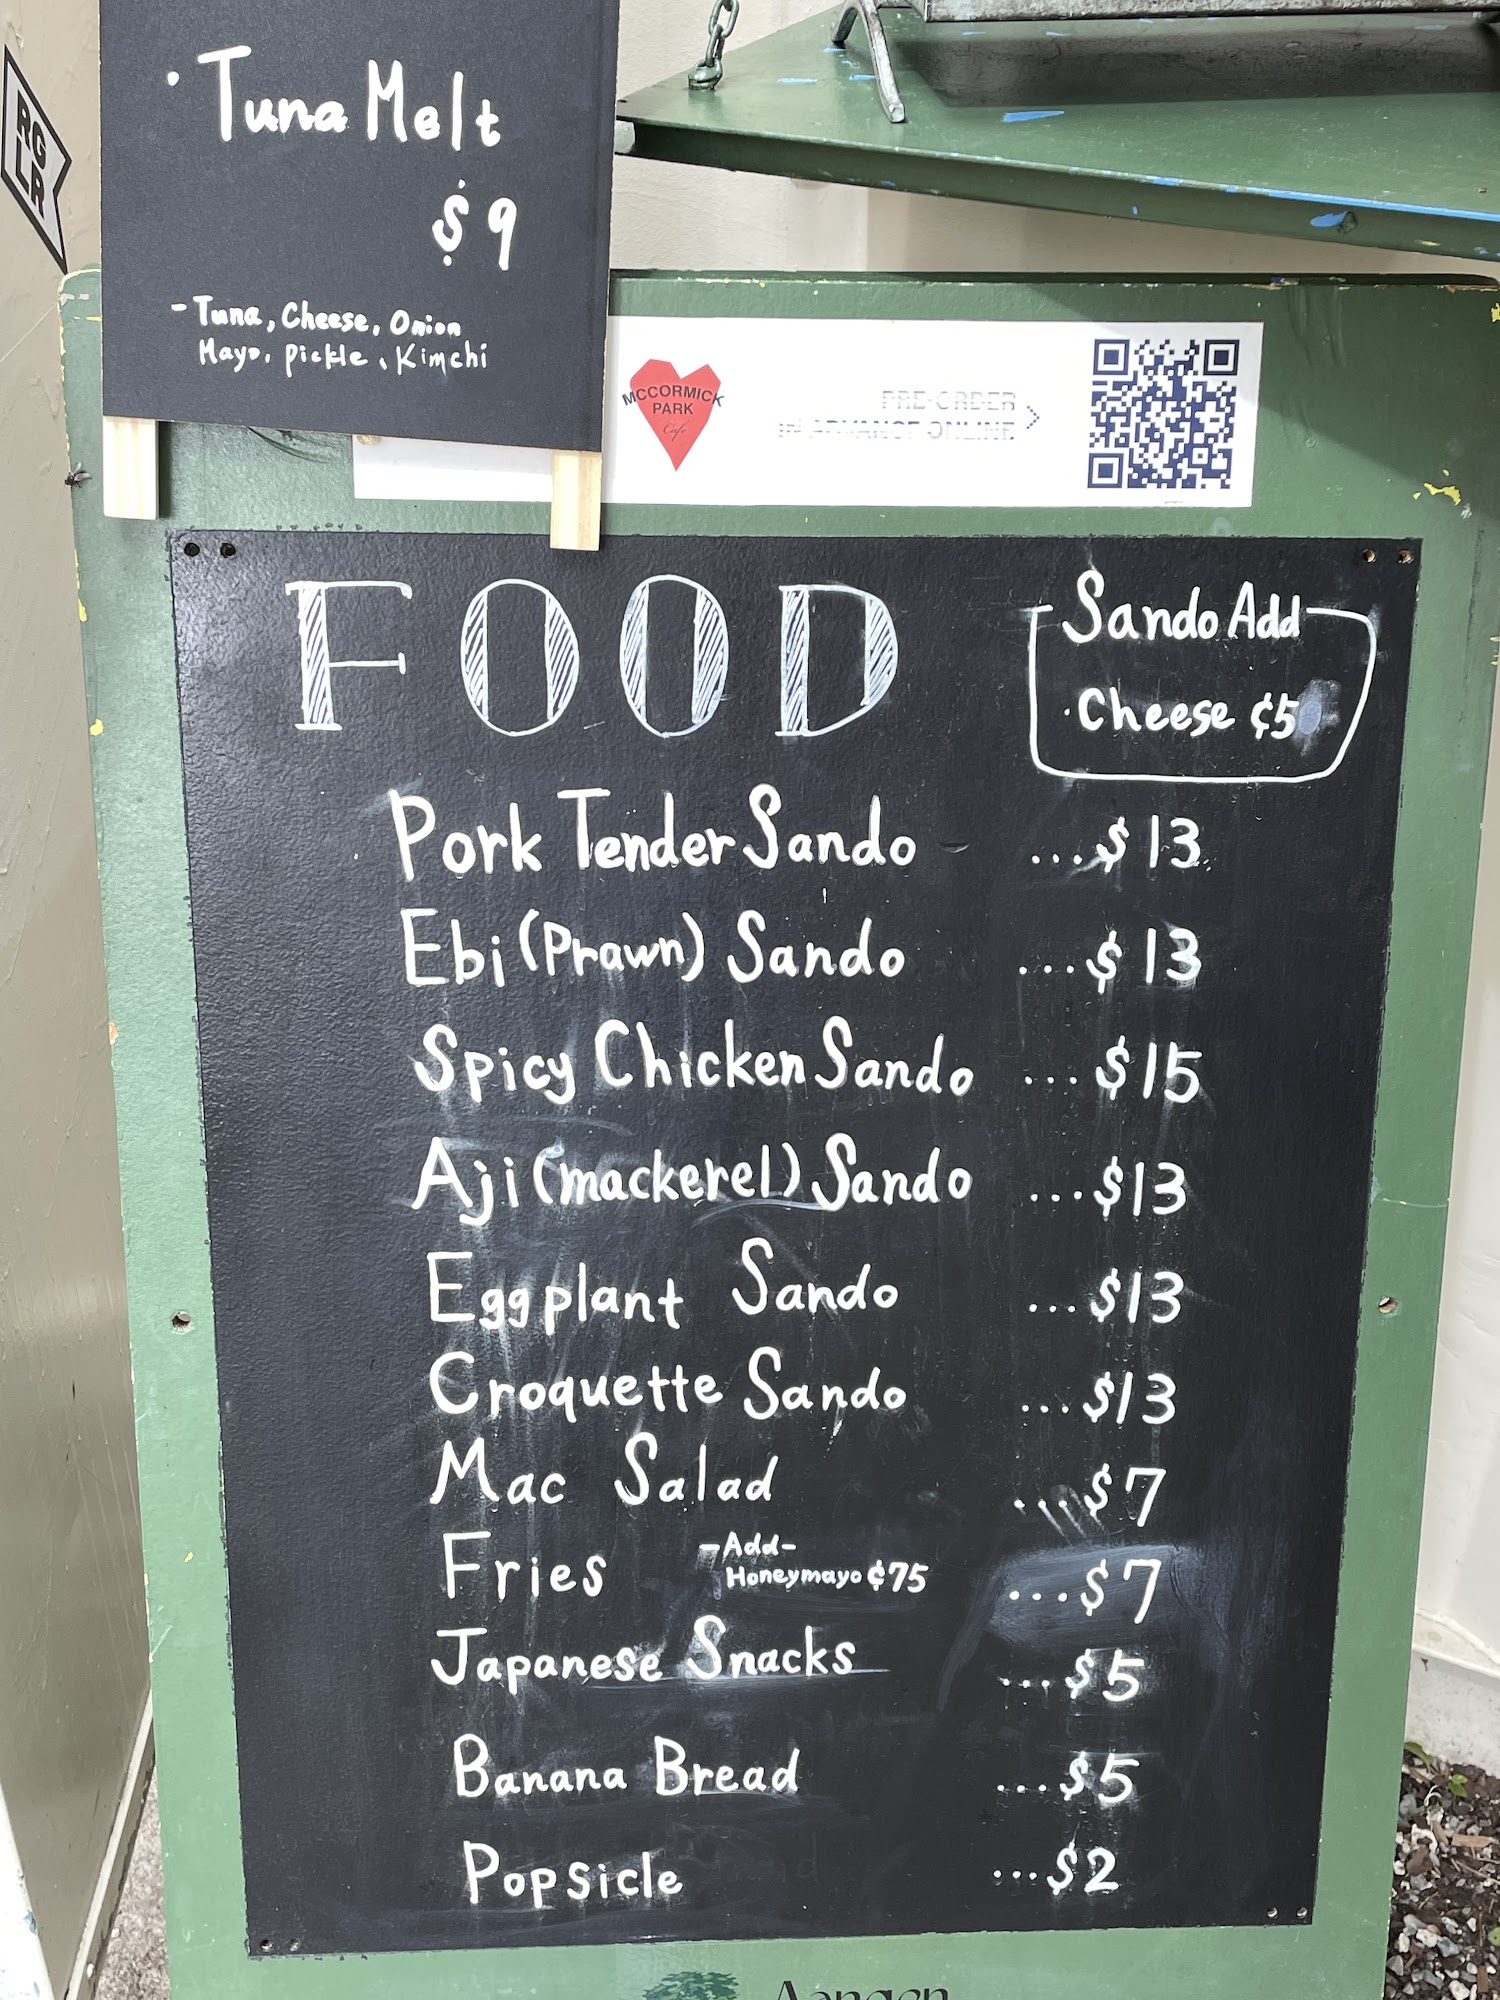 RG
LR
· Tuna Melt
$9
- Tuna, Cheese, Onion
Mayo, Pickle, Kimchi
MCCORMICK
PARK
Cafe
PRE-ORDER
IN ADVANCE ONLINE
FOOD
Sando Add
· Cheese ¢5
Pork Tender Sando ...$13
Ebi (Prawn) Sando ...$13
Spicy Chicken Sando ...$15
Aji (mackerel) Sando ...$13
Eggplant Sando ...$13
Croquette Sando ...$13
Mac Salad ...$7
Fries -Add- Honeymayo ¢75 ...$7
Japanese Snacks ...$5
Banana Bread ...$5
Popsicle ...$2